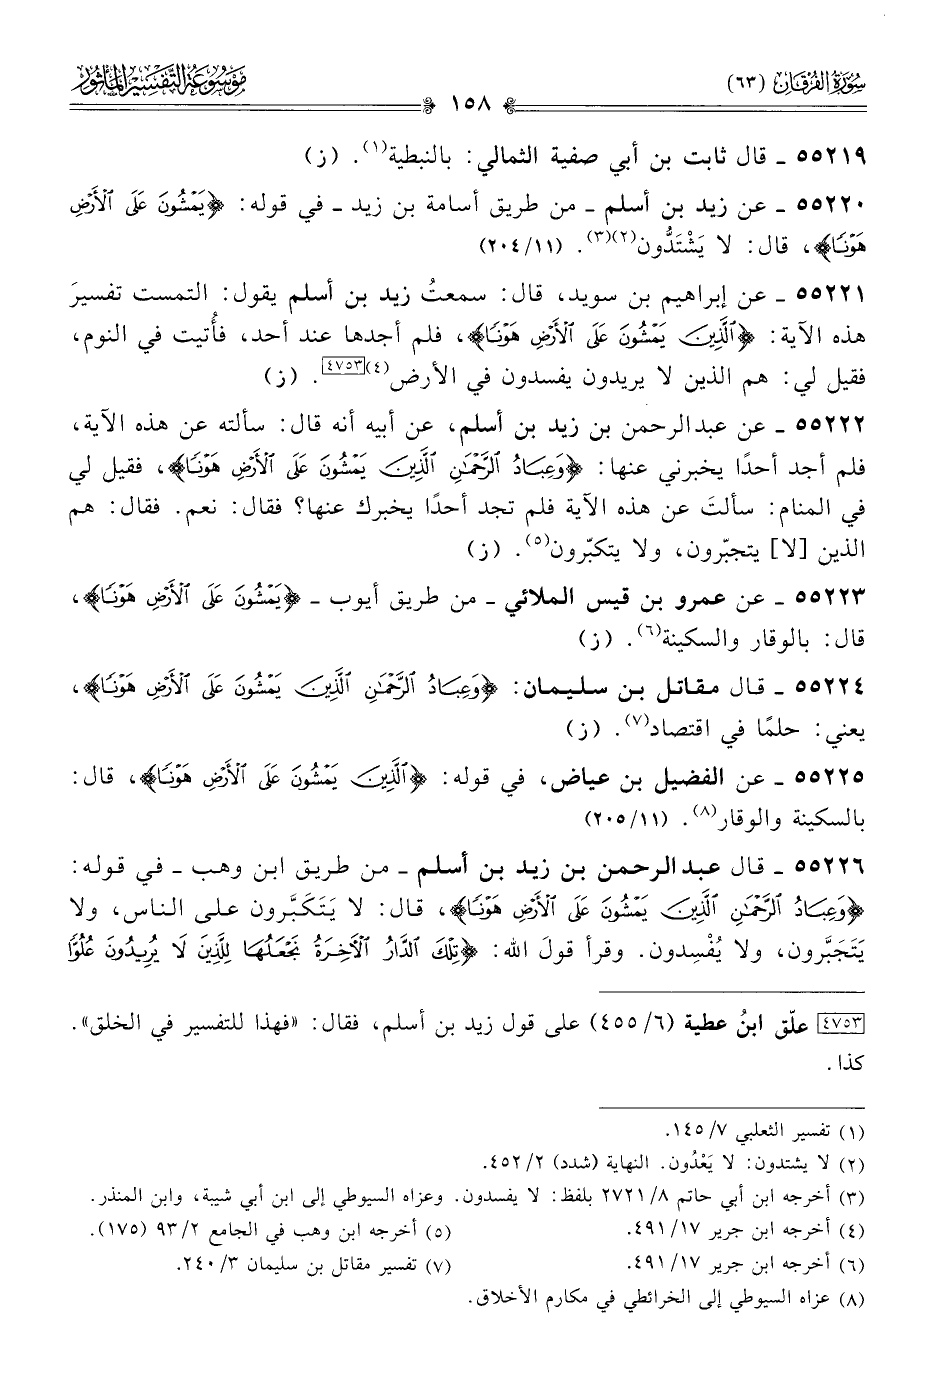 سُورَةُ الفُرْقَان (٦٣)
مَوْسُوعَة التَّفْسِير المَأْثُور
١٥٨
٥٥٢١٩ ـ قال ثابت بن أبي صفية الثمالي: بالنبطية(١). (ز)
٥٥٢٢٠ ـ عن زيد بن أسلم ـ من طريق أسامة بن زيد ـ في قوله: ﴿يَمْشُونَ عَلَى ٱلْأَرْضِ
هَوْنًا﴾، قال: لا يَشْتَدُّون(٢)(٣). (٢٠٤/١١)
٥٥٢٢١ ـ عن إبراهيم بن سويد، قال: سمعتُ زيد بن أسلم يقول: التمست تفسيرَ
هذه الآية: ﴿ٱلَّذِينَ يَمْشُونَ عَلَى ٱلْأَرْضِ هَوْنًا﴾، فلم أجدها عند أحد، فأُتيت في النوم،
فقيل لي: هم الذين لا يريدون يفسدون في الأرض(٤)[٤٧٥٣]. (ز)
٥٥٢٢٢ ـ عن عبدالرحمن بن زيد بن أسلم، عن أبيه أنه قال: سألته عن هذه الآية،
فلم أجد أحدًا يخبرني عنها: ﴿وَعِبَادُ ٱلرَّحْمَٰنِ ٱلَّذِينَ يَمْشُونَ عَلَى ٱلْأَرْضِ هَوْنًا﴾، فقيل لي
في المنام: سألتَ عن هذه الآية فلم تجد أحدًا يخبرك عنها؟ فقال: نعم. فقال: هم
الذين [لا] يتجبّرون، ولا يتكبّرون(٥). (ز)
٥٥٢٢٣ ـ عن عمرو بن قيس الملائي ـ من طريق أيوب ـ ﴿يَمْشُونَ عَلَى ٱلْأَرْضِ هَوْنًا﴾،
قال: بالوقار والسكينة(٦). (ز)
٥٥٢٢٤ ـ قال مقاتل بن سليمان: ﴿وَعِبَادُ ٱلرَّحْمَٰنِ ٱلَّذِينَ يَمْشُونَ عَلَى ٱلْأَرْضِ هَوْنًا﴾،
يعني: حلمًا في اقتصاد(٧). (ز)
٥٥٢٢٥ ـ عن الفضيل بن عياض، في قوله: ﴿ٱلَّذِينَ يَمْشُونَ عَلَى ٱلْأَرْضِ هَوْنًا﴾، قال:
بالسكينة والوقار(٨). (٢٠٥/١١)
٥٥٢٢٦ ـ قال عبدالرحمن بن زيد بن أسلم ـ من طريق ابن وهب ـ في قوله:
﴿وَعِبَادُ ٱلرَّحْمَٰنِ ٱلَّذِينَ يَمْشُونَ عَلَى ٱلْأَرْضِ هَوْنًا﴾، قال: لا يَتَكَبَّرون على الناس، ولا
يَتَجَبَّرون، ولا يُفْسِدون. وقرأ قولَ الله: ﴿تِلْكَ ٱلدَّارُ ٱلْآخِرَةُ نَجْعَلُهَا لِلَّذِينَ لَا يُرِيدُونَ عُلُوًّا
[٤٧٥٣] علّق ابنُ عطية (٤٥٥/٦) على قول زيد بن أسلم، فقال: «فهذا للتفسير في الخلق».
كذا.
(١) تفسير الثعلبي ١٤٥/٧.
(٢) لا يشتدون: لا يَعْدُون. النهاية (شدد) ٤٥٢/٢.
(٣) أخرجه ابن أبي حاتم ٢٧٢١/٨ بلفظ: لا يفسدون. وعزاه السيوطي إلى ابن أبي شيبة، وابن المنذر.
(٤) أخرجه ابن جرير ٤٩١/١٧. (٥) أخرجه ابن وهب في الجامع ٩٣/٢ (١٧٥).
(٦) أخرجه ابن جرير ٤٩١/١٧. (٧) تفسير مقاتل بن سليمان ٢٤٠/٣.
(٨) عزاه السيوطي إلى الخرائطي في مكارم الأخلاق.